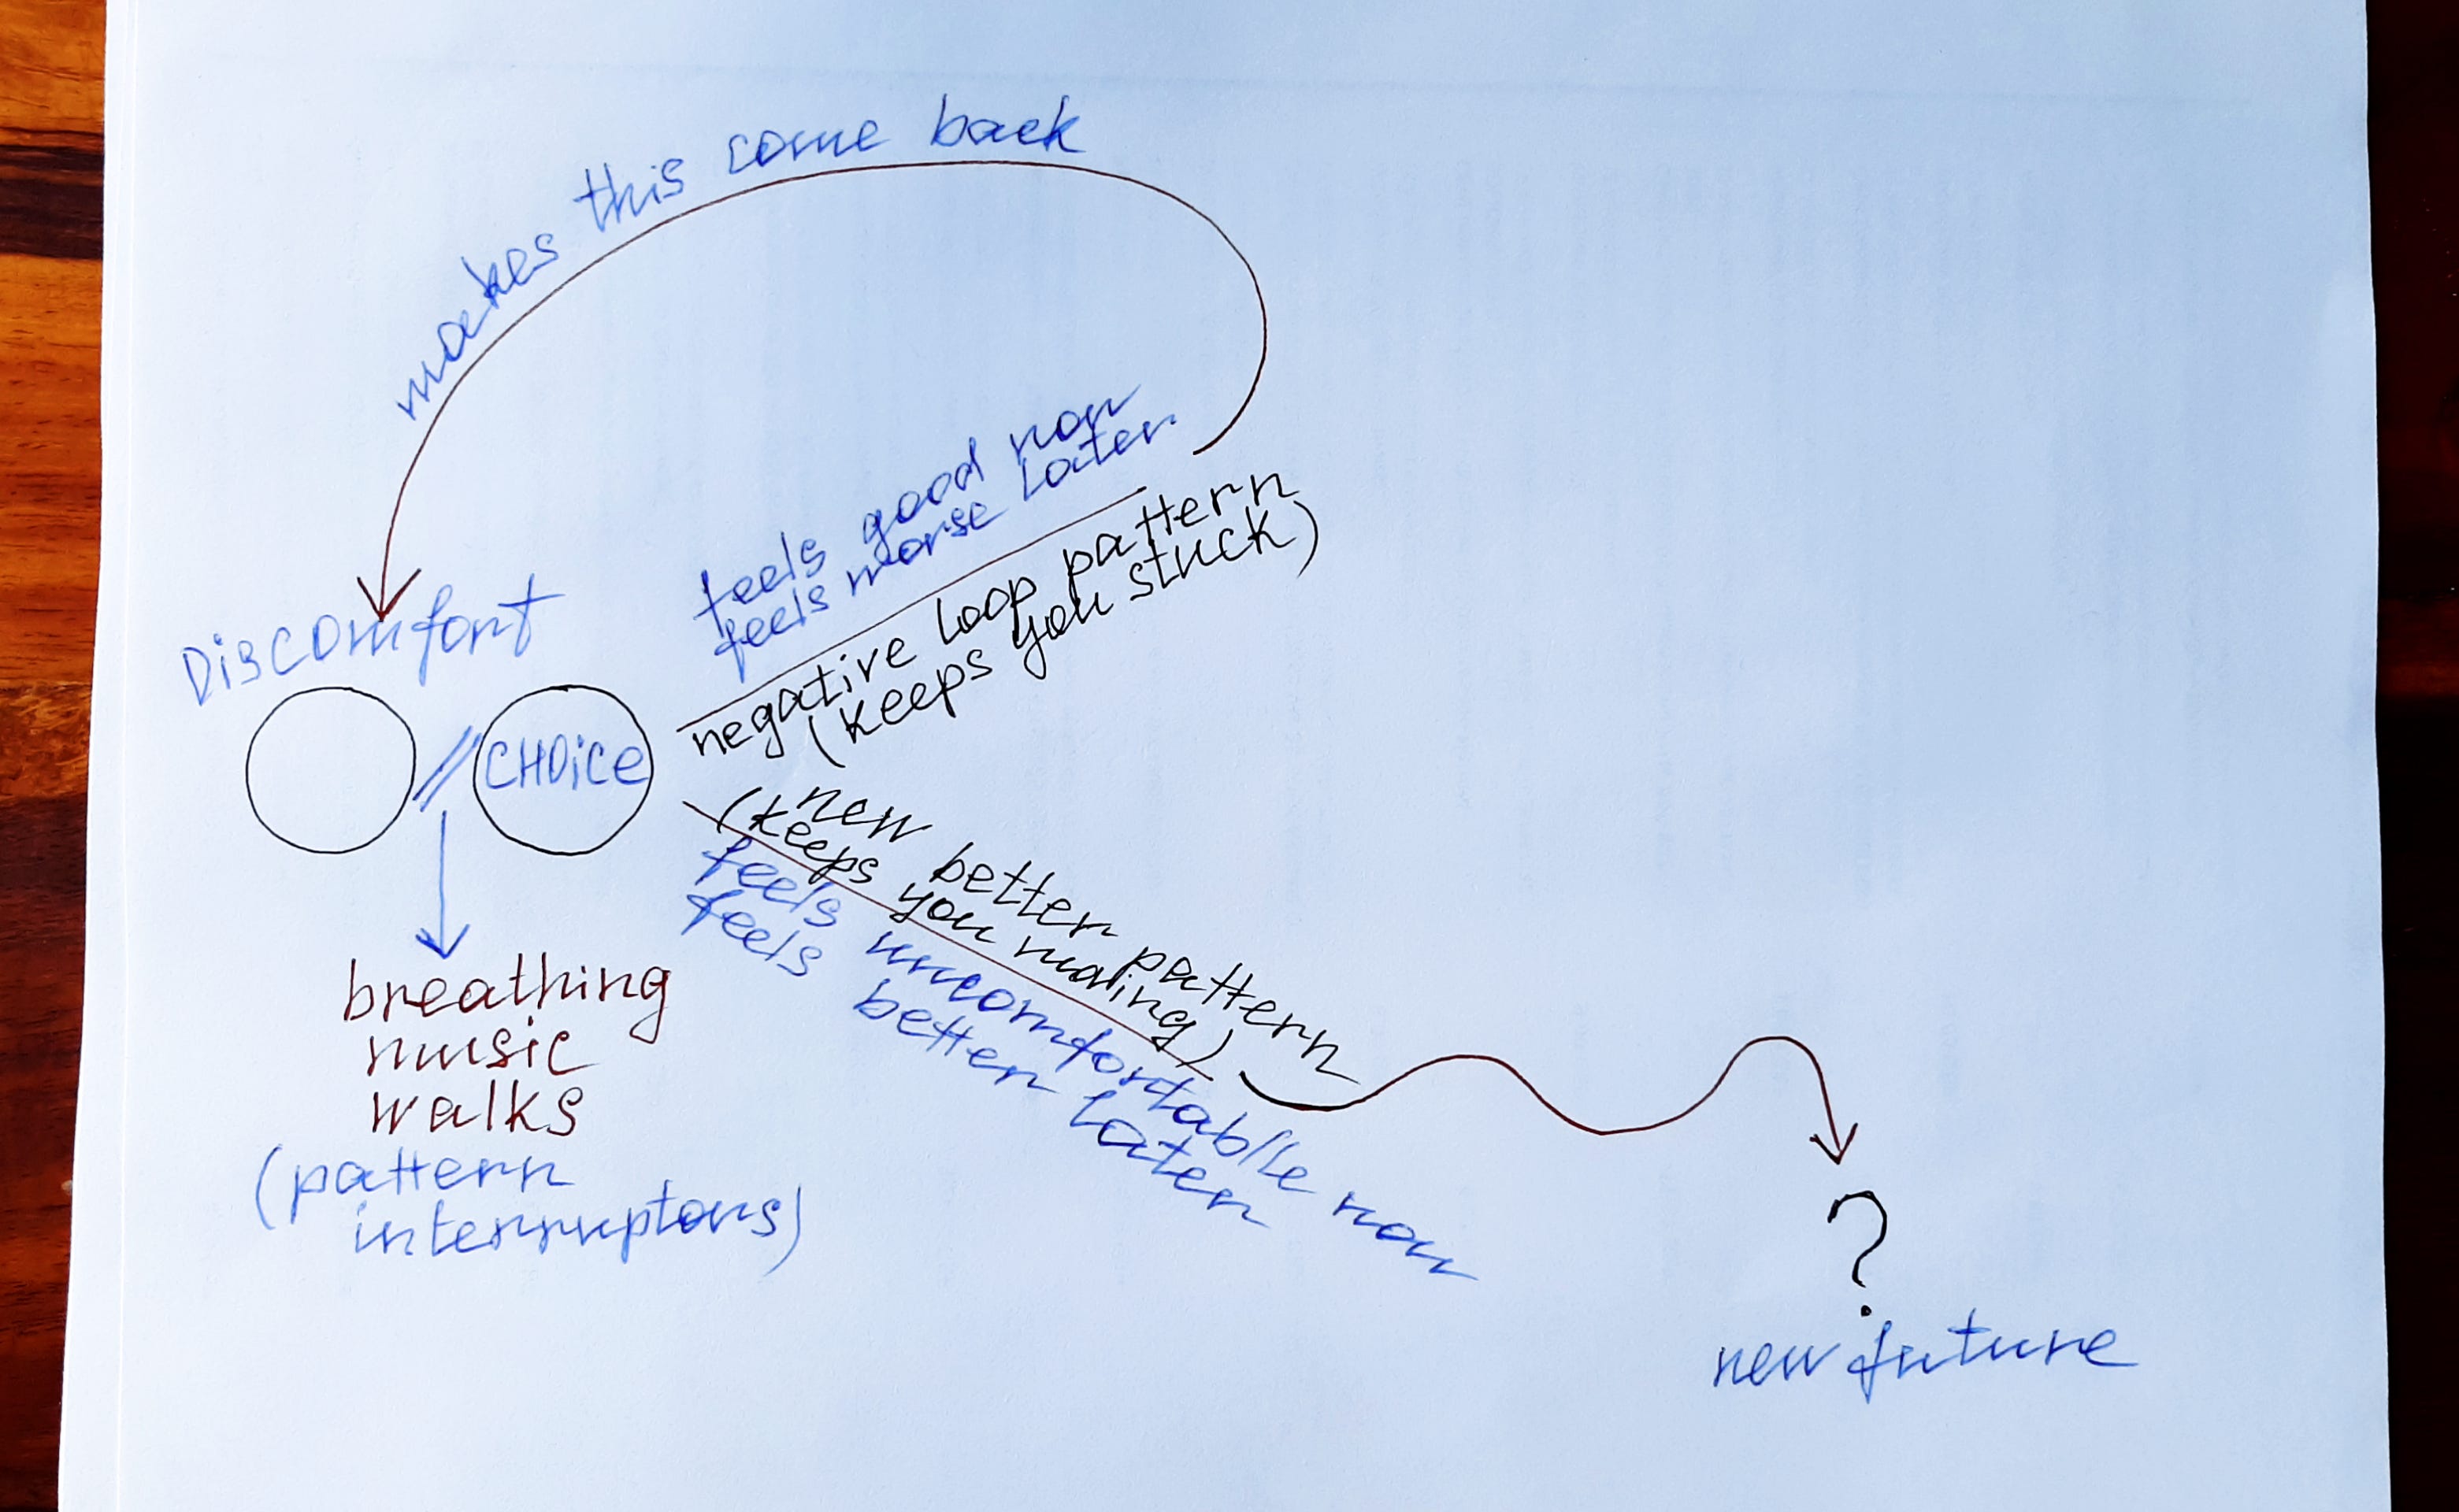 makes this come back
feels good now
feels worse later
negative loop pattern
(keeps you stuck)
Discomfort
CHOiCe
new better pattern
(keeps you
feels uncomfortable now
feels better later
breathing
music
walks
(pattern
interruptors)
?
new future